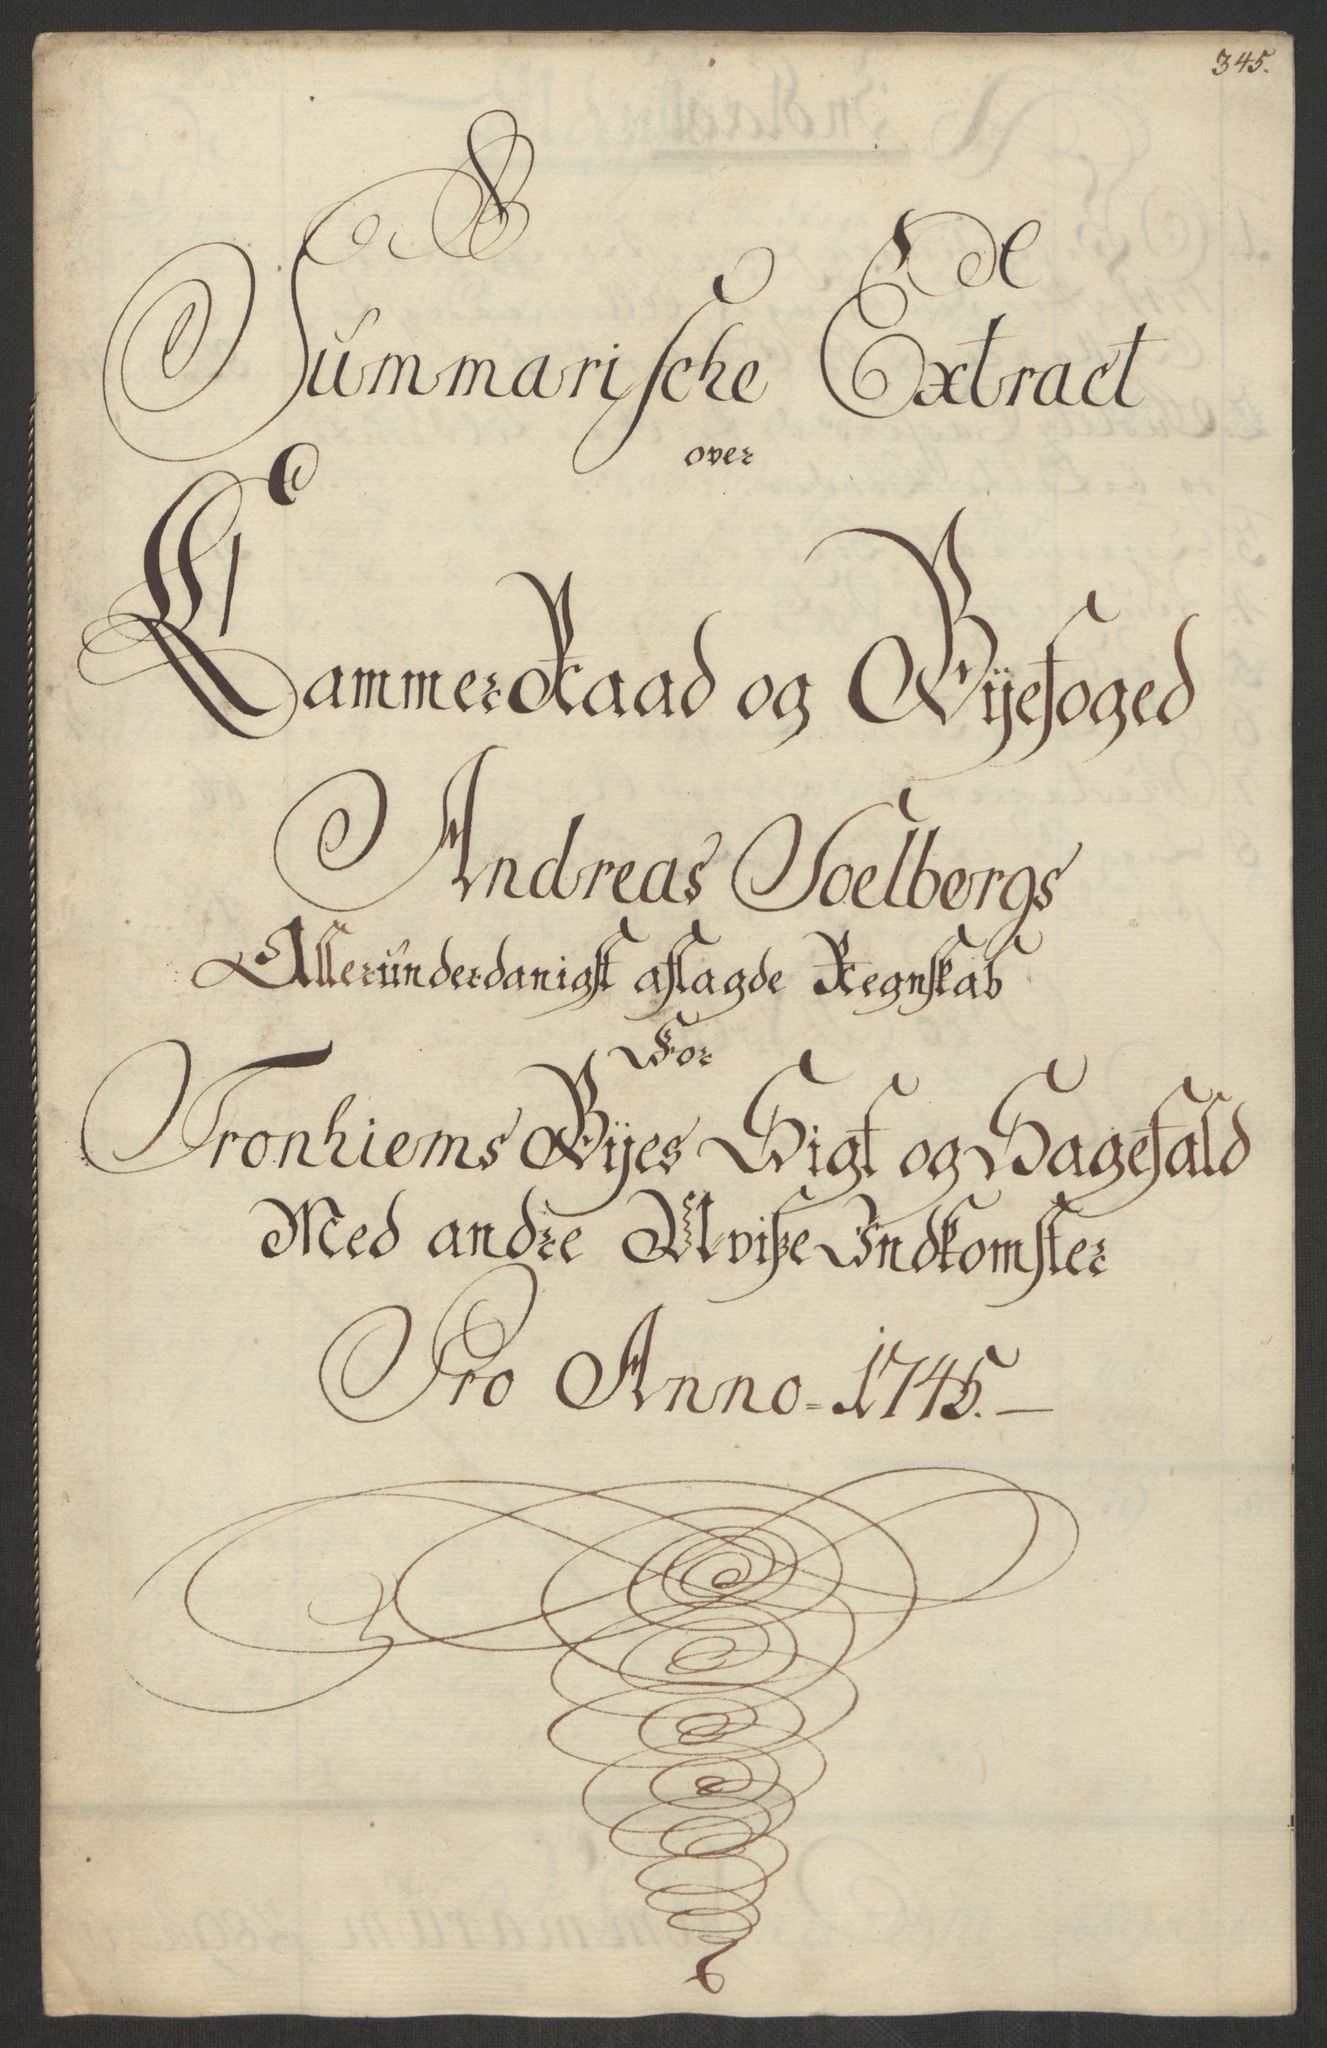 345.
Summarische Extract
over
Cammer Raad og Byefoged
Andreas Soelbergs
Allerunderdanigst aflagde Regnskab
For
Tronhiems Byes Sigt og Sagefald
Med andre Uvisse Indkomster
Pro Anno 1745.